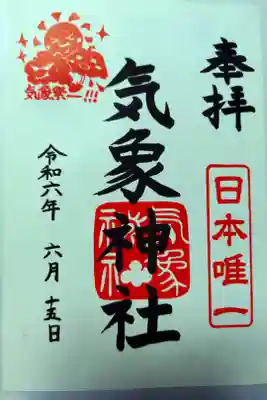 奉拝
日本唯一
気象神社
気象神社
気象祭!!!
令和六年 六月 十五日